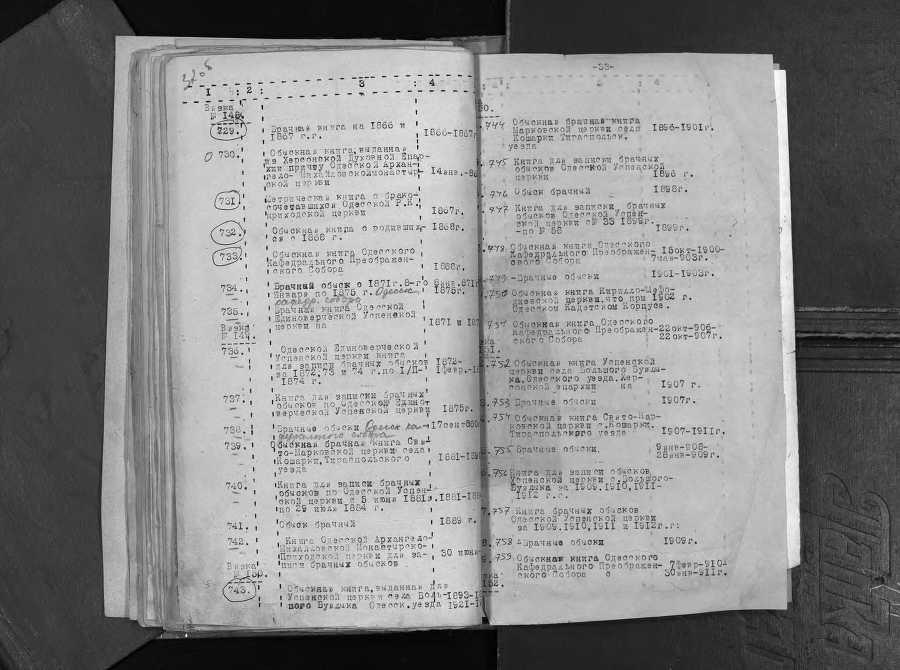 1 : 2 : 3 : 4
Вязка
№ 148.
729. Брачная книга на 1866 и 1866-1867г
1867 г.г.
730. Обыскная книга, выданная
из Херсонской Духовной Епар-
хии причту Одесской Архан-
гело-Михайловскоймонастыр- 14янв.-8
ской церкви
731 Метрическая книга о брако-
сочетавшихся Одесской Р.К.
приходской церкви 1867г.
732. Обыскная книга о родивших- 1868г.
ся с 1868 г.
733. Обыскная книга Одесского
Кафедрального Преображен-
ского Собора 1868г.
734. Брачный обыск с 1871г. 8-го 8янв.871г
Января по 1875 г. Одесск. 1875г.
кафедр. собора
735. Брачная книга Одесской
Вязка Единоверческой Успенской
№ 149. церкви на 1871 и 187
736. Одесской Единоверческой
Успенской церкви книга
для записи брачных обысков 1872-
за 1872,73 и 74 г.по 1/П- 1февр.-18
1874 г.
737. Книга для записи брачных
обысков по Одесской Едино-
верческой Успенской церкви 1875г.
738. Брачные обыски Одесск ка- 17сент
федрального собора
739. Обыскная брачная книга Свя-
то-Марковской церкви села
Кошарки,Тираспольского 1881-189
уезда
740. Книга для записи брачных
обысков по Одесской Успен-
ской церкви с 5 июня 1881г. 1881-188
по 29 июля 1884 г.
741. Обыск брачный 1889 г.
742. Книга Одесской Архангело-
Михайловской Монастырско-
Приходской церкви для за- 30 июня
Вязка писи брачных обысков
№ 150.
743. Обыскная книга,выданная для
Успенской церкви села Боль- 1893-1
шого Буялыка Одесск.уезда 1921-1
-33-
744 Обыскная брачная книга
Марковской церкви села 1896-1901г.
Кошарки Тираспольск.
уезда
745 Книга для записи брачных
обысков Одесской Успенской
церкви 1896 г.
746 Обыск брачный 1898г.
747 Книга для записи брачных
обысков Одесской Успен-
ской церкви с№ 33 1899г.
-по № 56 1899г.
748. Обыскная книга Одесского
Кафедрального Преображен- 18окт-1900-
ского Собора 7мая-903г.
749 -Брачные обыски 1901-1903г.
750 Обыскная книга Кирилло-Мефо-
диевской церкви,что при 1902 г.
Одесском Кадетском Корпусе.
751 Обыскная книга Одесского
Кафедрального Преображен- 22окт-906-
ского Собора 22окт-907г.
752 Обыскная книга Успенской
церкви села Большого Буялы-
ка,Одесского уезда,Хер-
сонской епархии на 1907 г.
753 Брачные обыски 1907г.
754 Обыскная книга Свято-Мар-
ковской церкви с.Кошарки,
Тираспольского уезда 1907-1911г.
755 Брачные обыски. 9янв-908-
28янв-909г.
756 Книга для записи обысков
Успенской церкви с.Большого-
Буялыка за 1909,1910,1911-
1912 г.г.
757 Книга брачных обысков
Одесской Успенской церкви
за 1909,1910,1911 и 1912г.г:
758 -Брачные обыски 1909г.
759. Обыскная книга Одесского
Кафедрального Преображен- 7февр-910-
ского Собора с 30янв-911г.